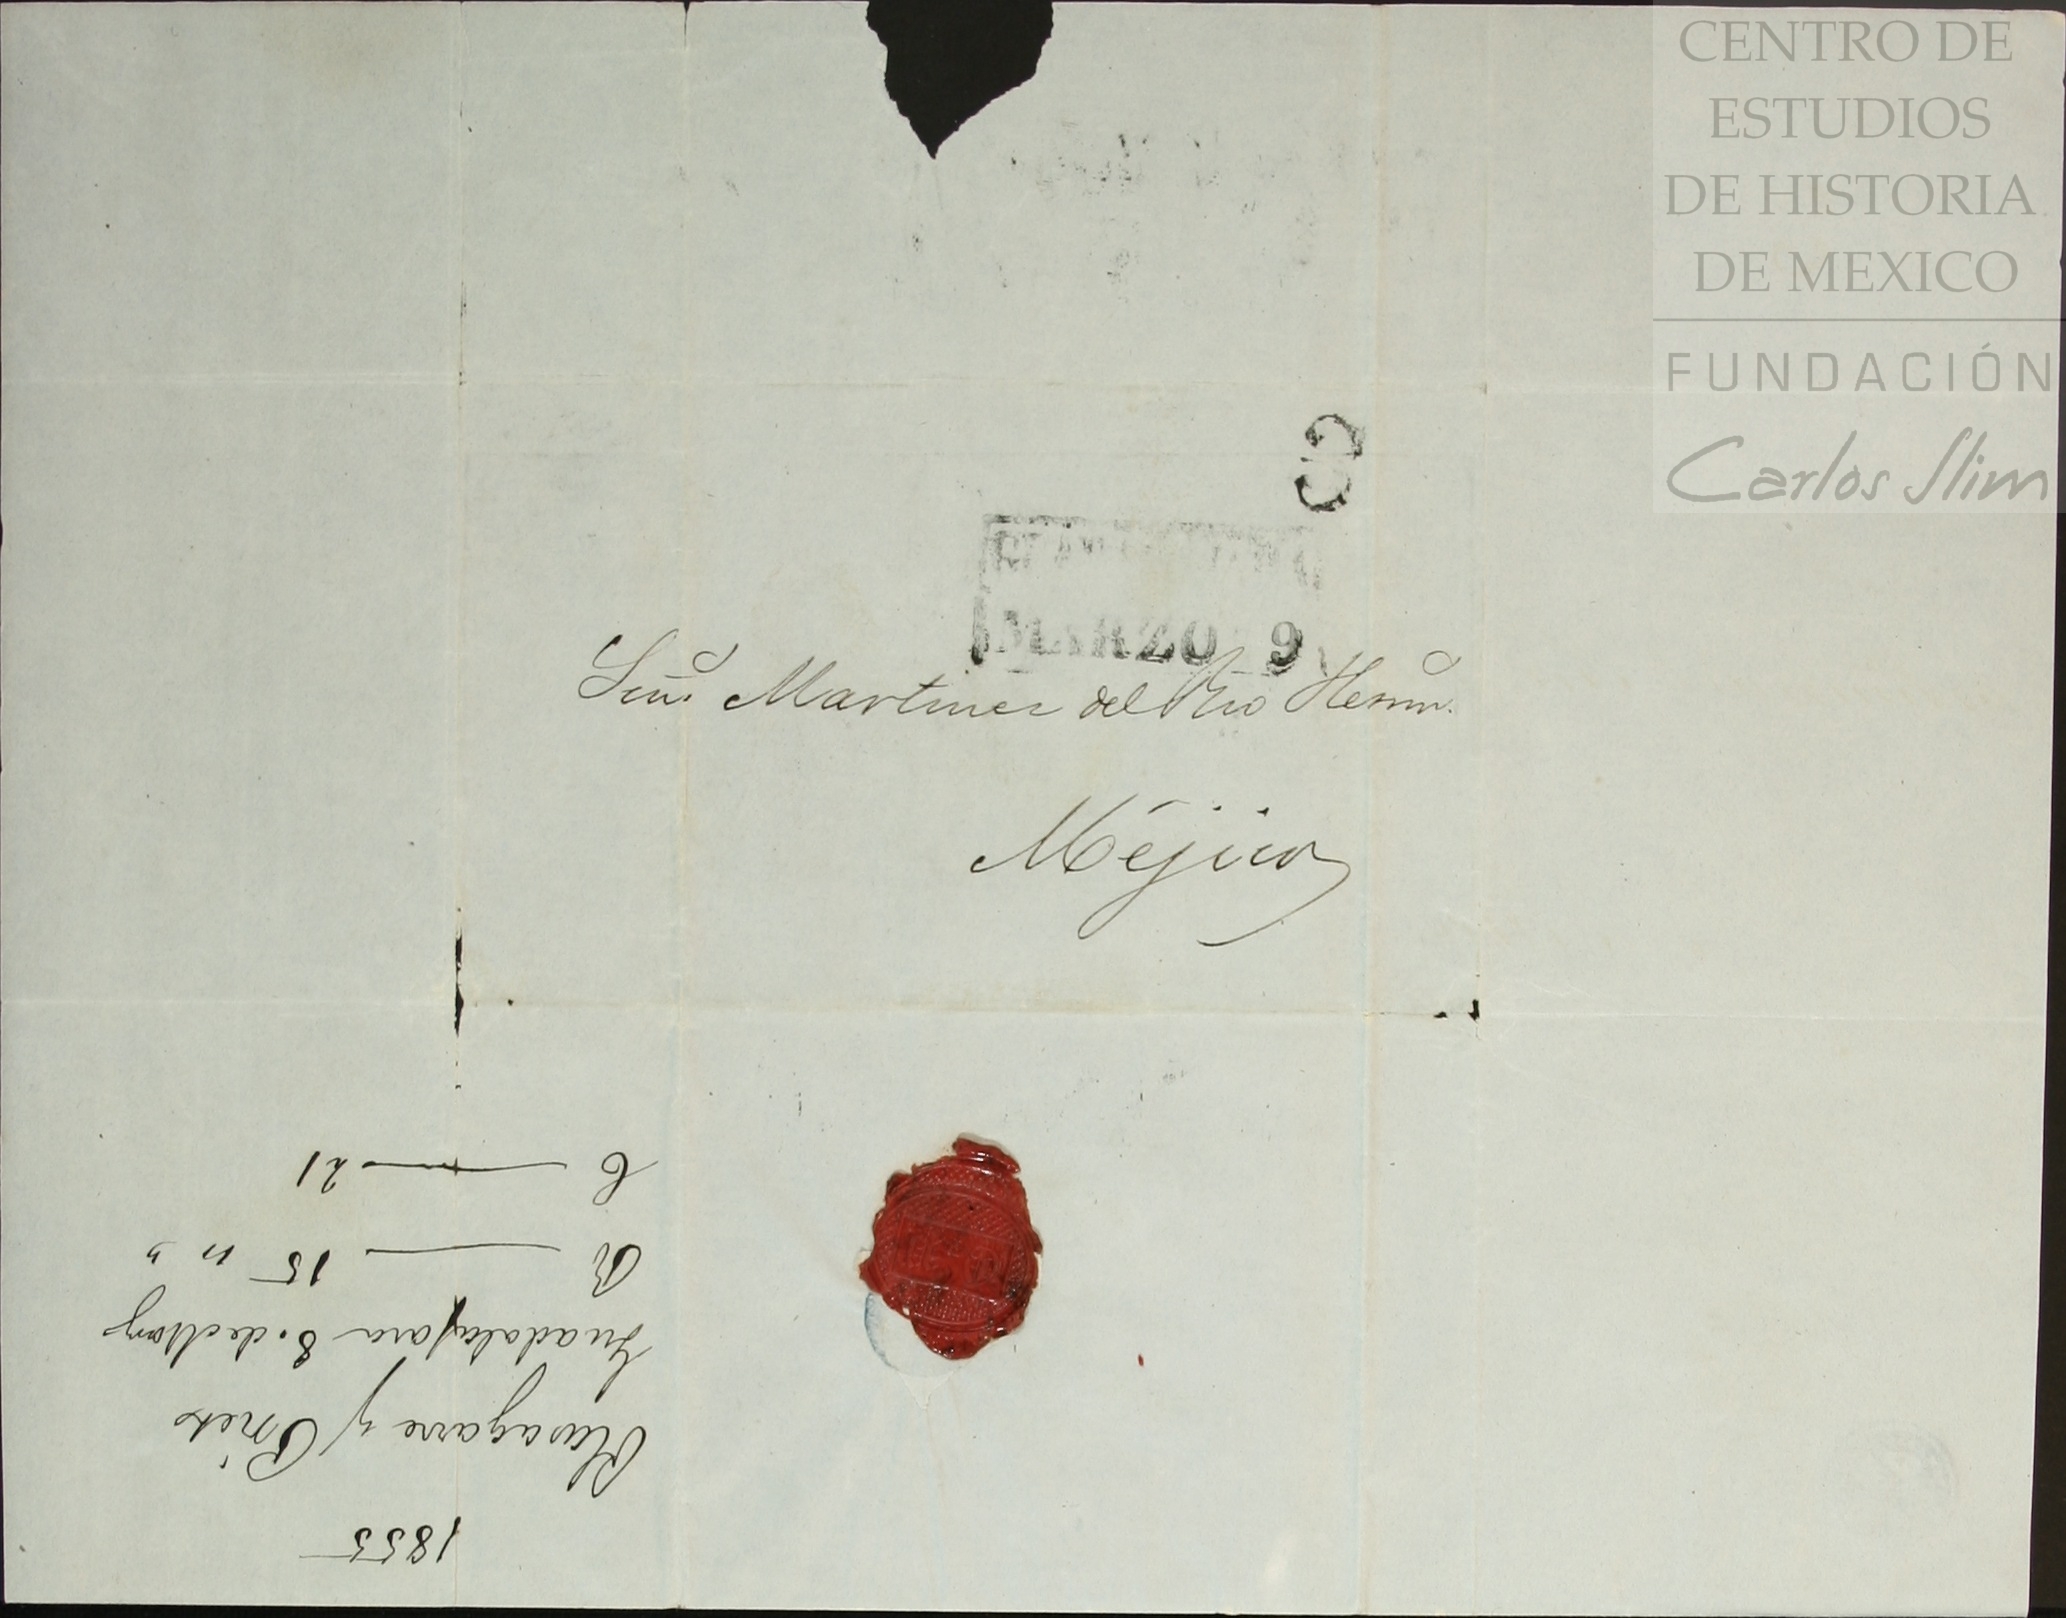 CENTRO DE
ESTUDIOS
DE HISTORIA
DE MEXICO
FUNDACIÓN
Carlos Slim
MARZO 9
Señ.s Martinez del Rio Herm.s
Méjico
1855
Olasagarre y Prieto
Guadalajara 8. de Marz
R 15 " "
C 21